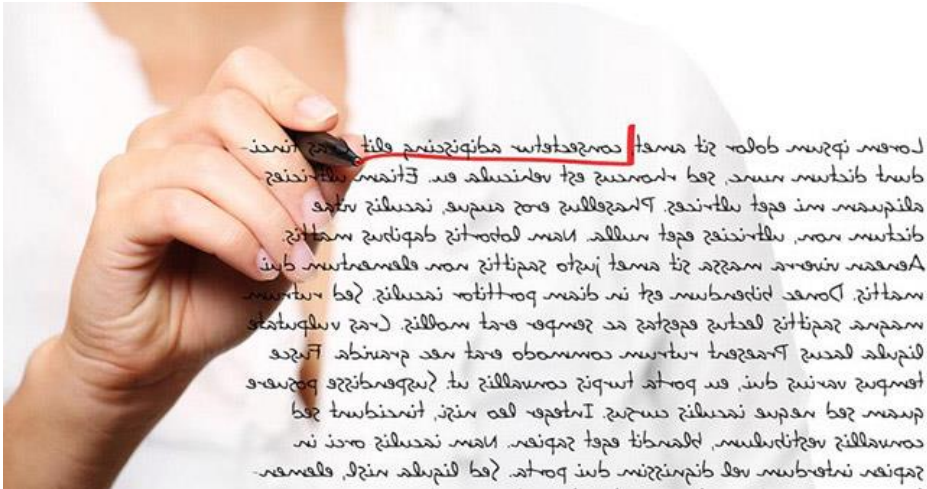 Lorem ipsum dolor sit amet, consectetur adipiscing elit. Cras tinci-
dunt dictum nunc, sed rhoncus est vehicula eu. Etiam ultricies
aliquam mi eget ultrices. Phasellus eros augue, iaculis vitae
dictum non, ultricies eget nulla. Nam lobortis dapibus mattis.
Aenean viverra massa sit amet justo sagittis non elementum dui
mattis. Donec bibendum est in diam porttitor iaculis. Sed rutrum
magna sagittis lectus egestas ac semper erat mollis. Cras vulputate
ligula lacus. Praesent rutrum commodo erat nec gravida. Fusce
tempus varius dui, eu porta turpis convallis ut. Suspendisse posuere
quam sed neque iaculis cursus. Integer leo nisi, tincidunt sed
convallis vestibulum, blandit eget sapien. Nam iaculis orci in
sapien interdum vel dignissim dui porta. Sed ligula nisl, elemen-